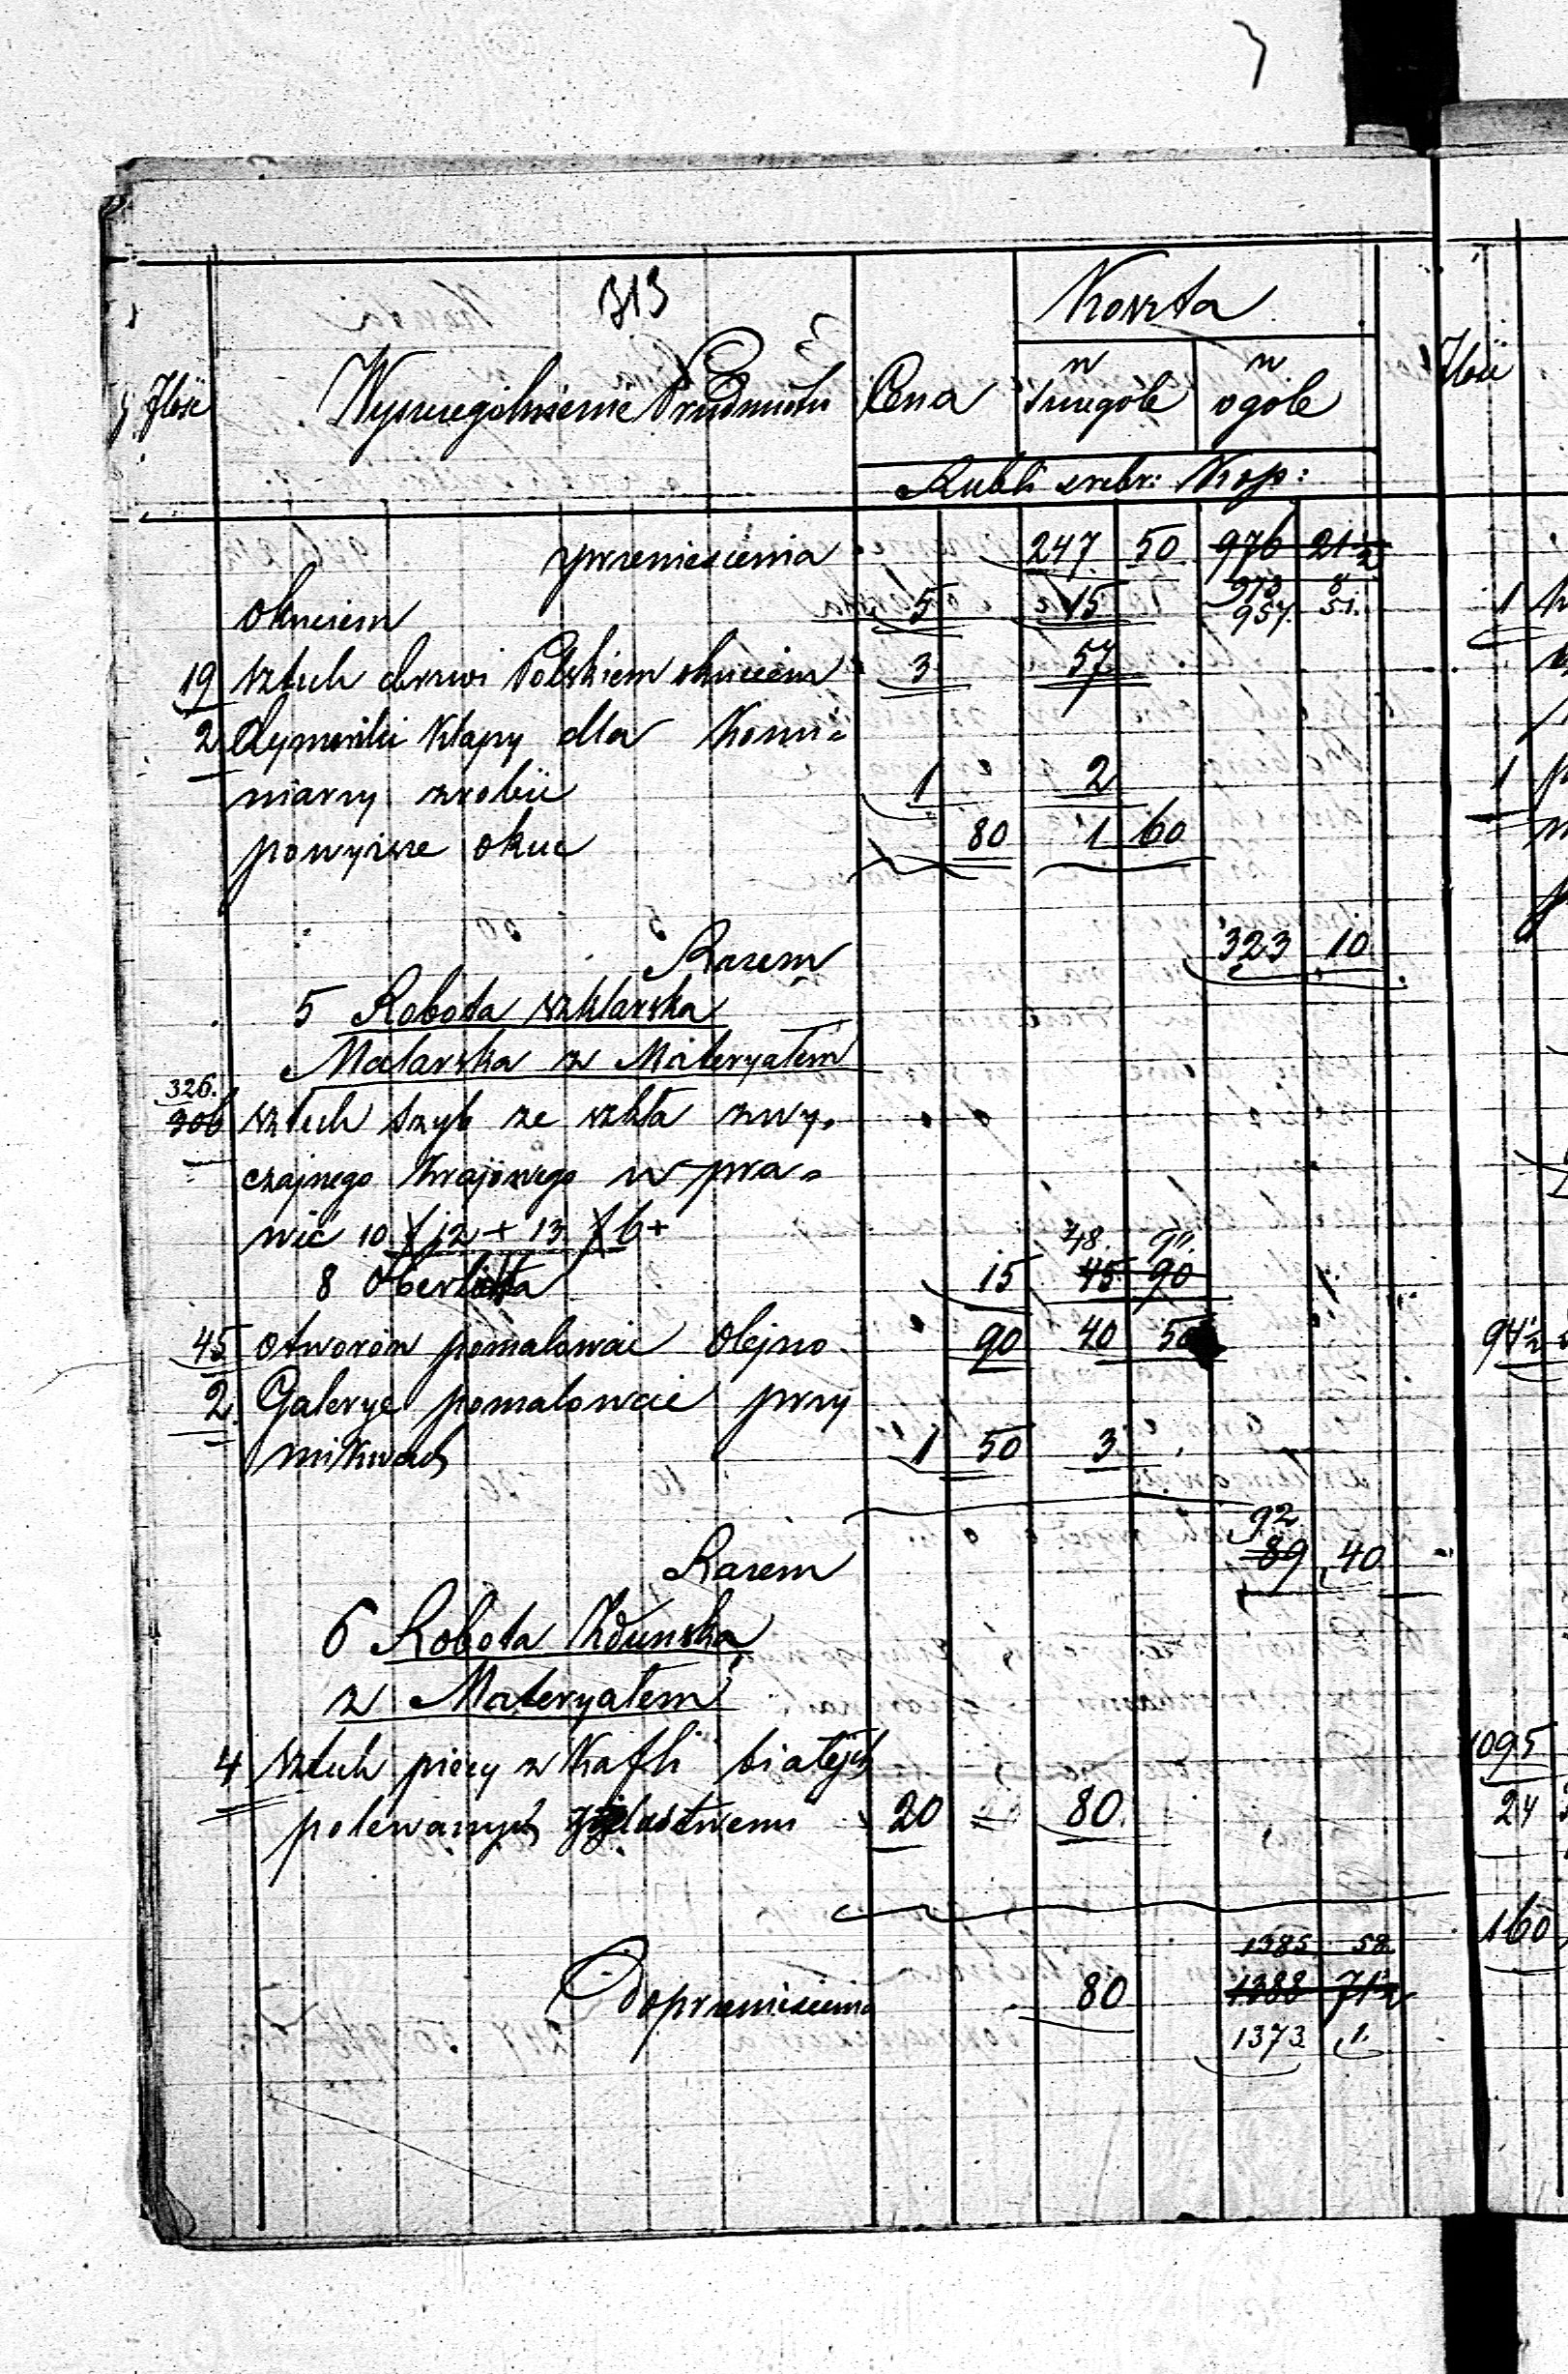 313
Koszta
Ilość Wyszczególnienie Przedmiotu Cena w szczególe w ogóle
Rubli srebr: Kop:
z przeniesienia 247 50 976 21½
973 8
okuciem 5 15 957. 51.
19 sztuk drzwi Polskiem okuciem 3 57
2 Dymniki klapy dla Komi=
niarzy zrobić 1 2
80 1 60
powyższe okuć
Razem 323 10
5 Robota szklarska
Malarska z Materyałem
326.
306 sztuk szyb ze szkła zwy=
czajnego Krajowego w pra=
wić 10 X 12 + 13 X 6 +
48. 90.
8 Oberlichta 15 45 90
45 otworów pomalować Olejno 90 40 50
2 Galerye pomalować przy
mikwach 1 50 3
92
Razem 89 40
6 Robota Zduńska
z Materyałem
4 sztuk piecy z Kafli białych
polewanych 20 = 80.
1385 58
Do przeniesienia 80 1388 71½
1373 1.
Ilość
1
1
94½
1095
24
160